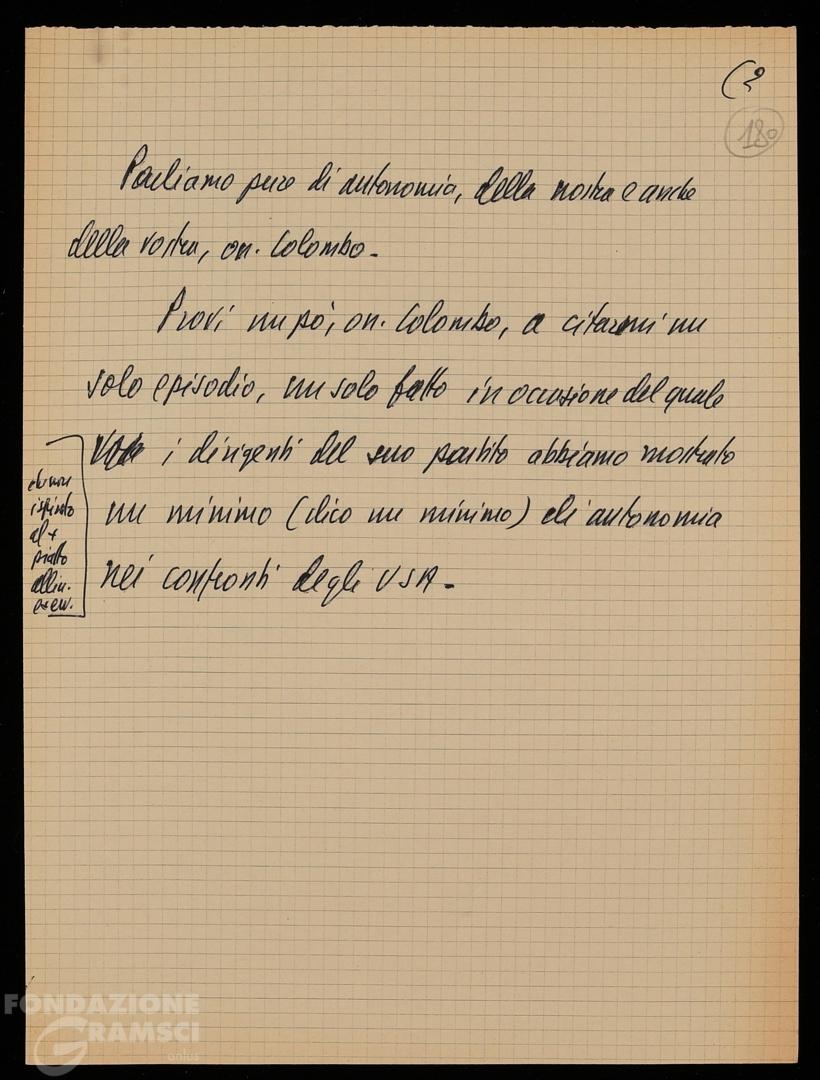 (2
180
Parliamo pure di autonomia, della nostra e anche
della vostra, on. Colombo -
Provi un pò, on. Colombo, a citarmi un
solo episodio, un solo fatto in occasione del quale
i dirigenti del suo partito abbiamo mostrato
un minimo (dico un minimo) di autonomia
nei confronti degli USA -
ispirato
al +
piatto
allin.
FONDAZIONE
GRAMSCI
onlus